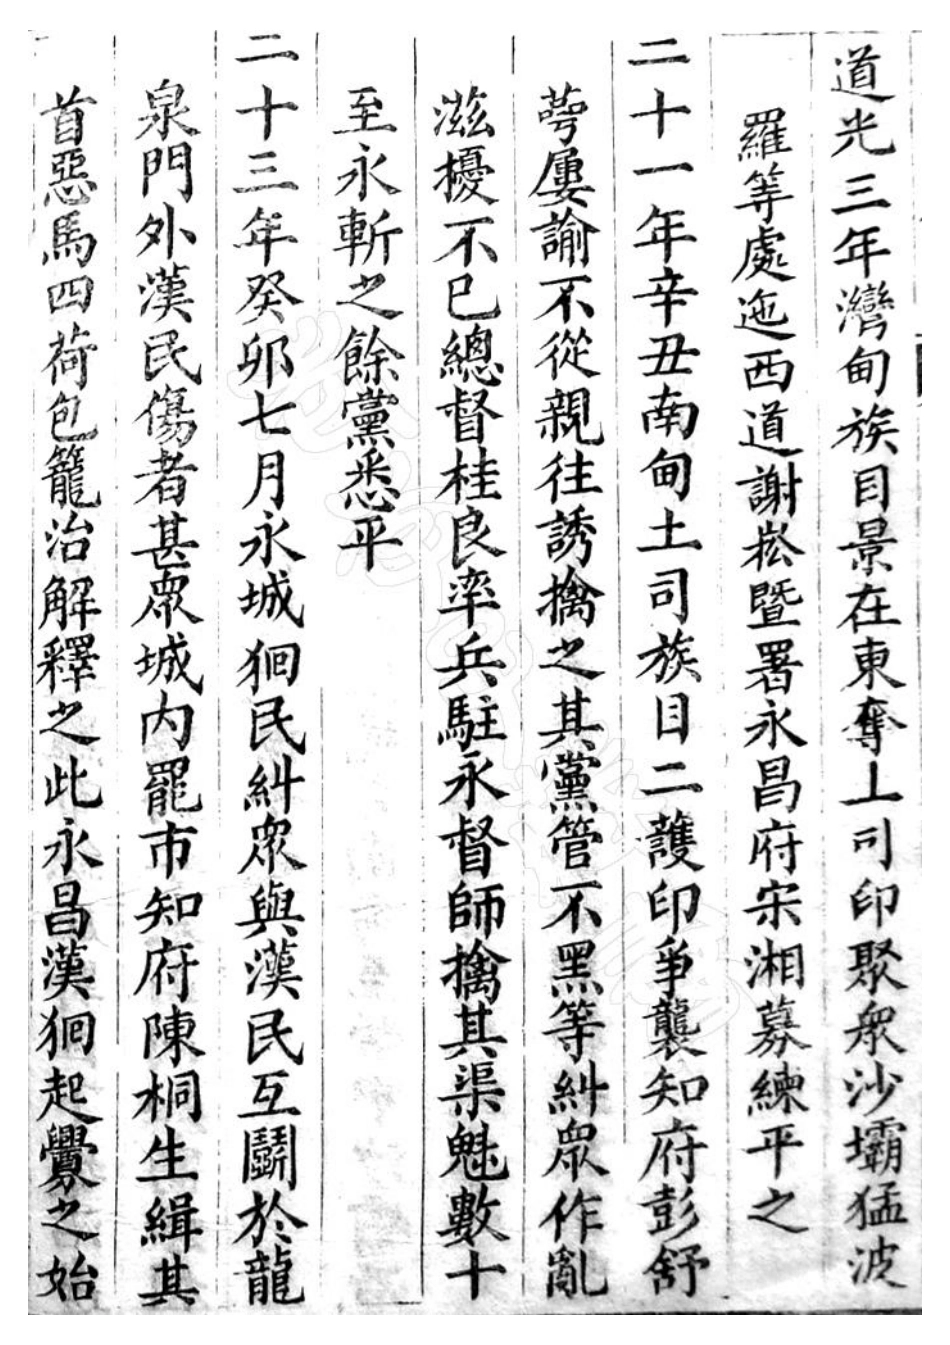 道光三年灣甸族目景在東奪土司印聚衆沙壩猛波
羅等處迤西道謝崧暨署永昌府宋湘募練平之
二十一年辛丑南甸土司族目二護印爭襲知府彭舒
萼屢諭不從親往誘擒之其黨管不黑等糾眾作亂
滋擾不已總督桂良率兵駐永督師擒其渠魁數十
至永斬之餘黨悉平
二十三年癸卯七月永城狪民糾眾與漢民互鬭於龍
泉門外漢民傷者甚眾城内罷市知府陳桐生緝其
首惡馬四荷包籠治解釋之此永昌漢狪起釁之始